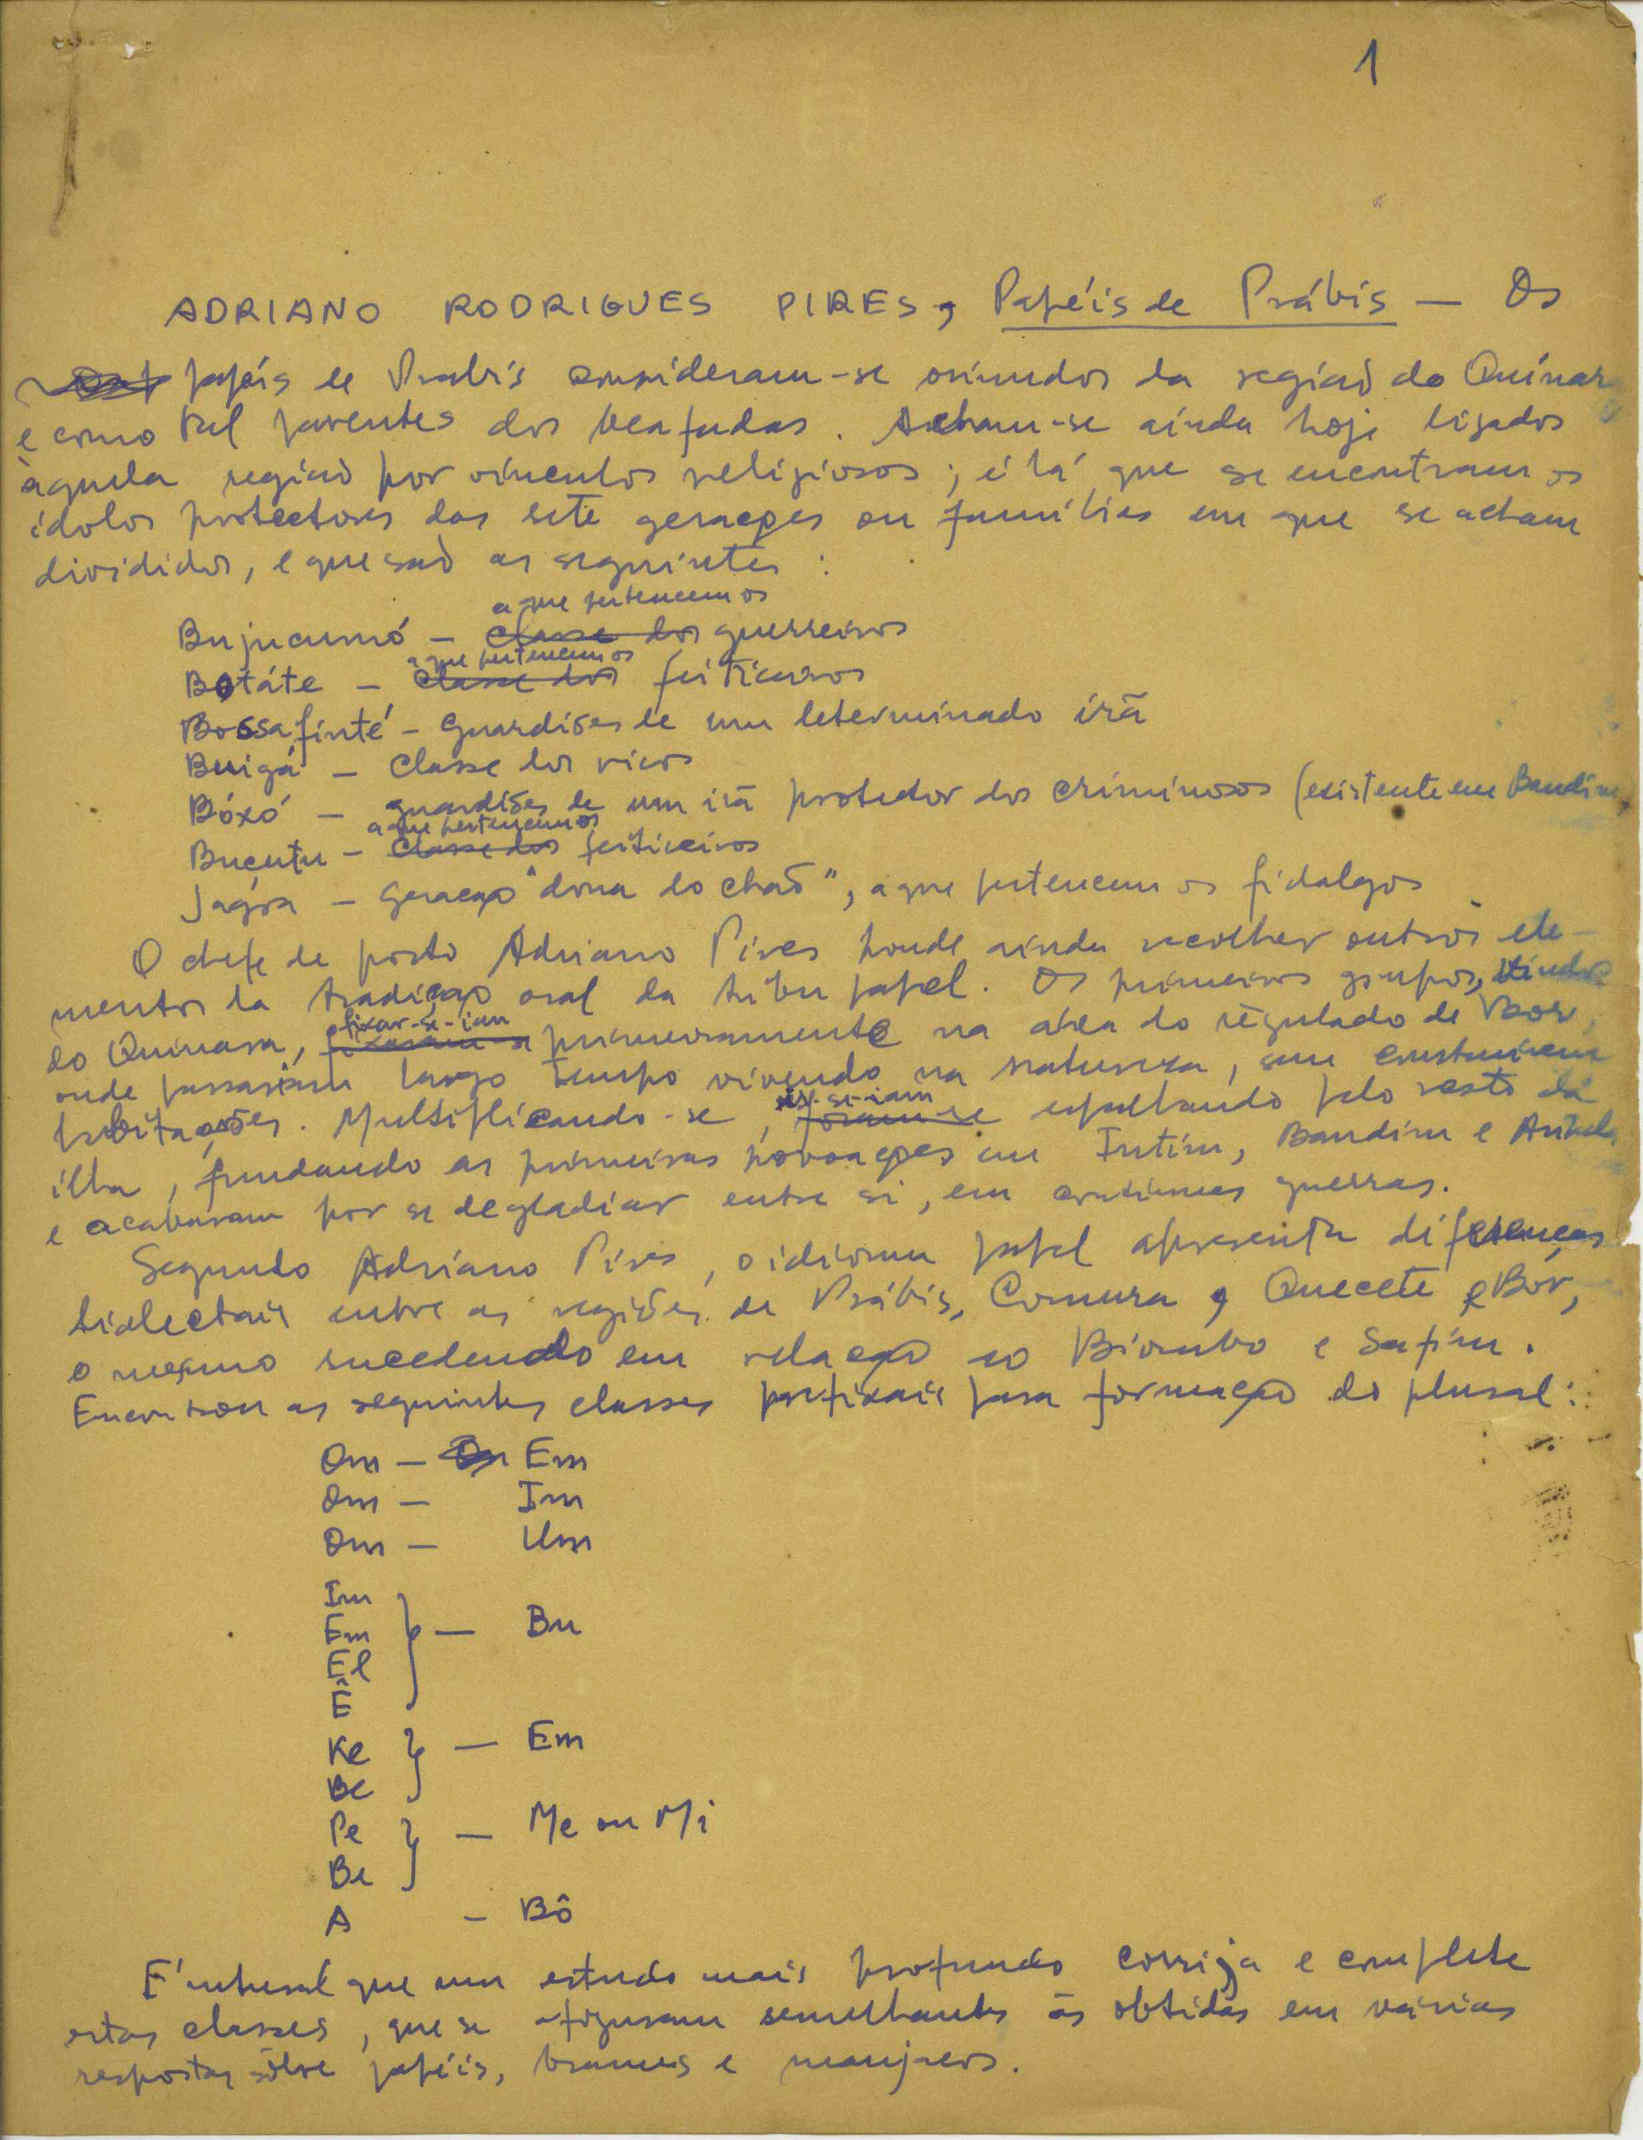 1
ADRIANO RODRIGUES PIRES, Papéis de Prábis — Os
papéis de Prabis consideram-se oriundos da região do Quínara
e como tal parentes dos beafadas. Acham-se ainda hoje ligados
àquela região por vínculos religiosos; é lá que se encontram os
ídolos protectores das sete gerações ou famílias em que se acham
divididos, e que são as seguintes:
a que pertencem os
Bujucumó — classe dos guerreiros
a que pertencem os
Botáte — classe dos feiticeiros
Bossafinté — Guardiões de um determinado irã
Buigá — Classe dos ricos
Bóxó — guardiões de um irã protector dos criminosos (existente em Bandim)
a que pertencem os
Bucutu — classe dos feiticeiros
Jagra — Geração "dona do chão", a que pertencem os fidalgos
O chefe de posto Adriano Pires poude ainda recolher outros ele-
mentos da tradição oral da tribu papel. Os primeiros grupos, vindos
fixar-se-iam
do Quinara, fixaram-se primeiramente na área do regulado de Boor,
onde passariam largo tempo vivendo na natureza, sem construirem
ir-se-iam
habitações. Multiplicando-se, foram-se espalhando pelo resto da
ilha, fundando as primeiras povoações em Intim, Bandim e Antula
e acabaram por se degladiar entre si, em contínuas guerras.
Segundo Adriano Pires, o idioma papel apresenta diferenças
dialectais entre as regiões de Prábis, Comura, Quecete e Bor,
o mesmo sucedendo em relação ao Biombo e Safim.
Encontrou as seguintes classes prefixais para formação do plural:
Om — Em
Om — Im
Om — Um
Im
Em } — Bu
El
Ê
Ke } — Em
Be
Pe } — Me ou Mi
Be
A — Bô
É natural que um estudo mais profundo corrija e complete
estas classes, que se afiguram semelhantes às obtidas em várias
respostas sôbre papéis, brames e manjacos.